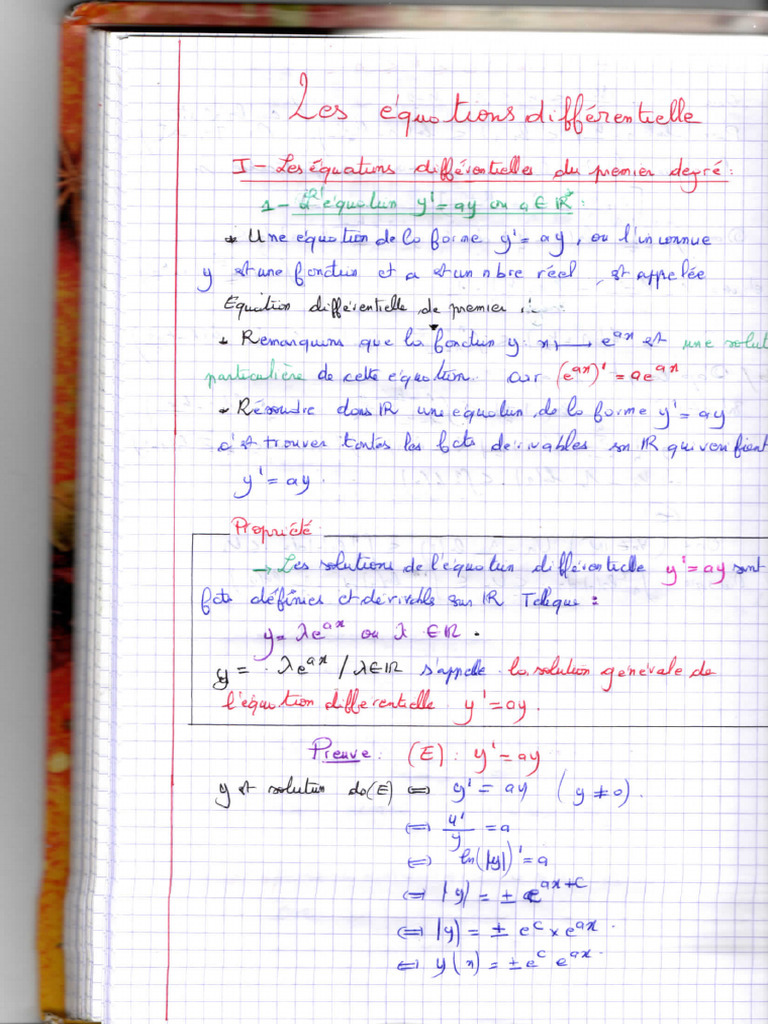 Les équations différentielle
I - Les équations différentielles du premier degré :
1 - L'équation y' = ay où a ∈ IR* :
* Une équation de la forme y' = ay, où l'inconnue
y est une fonction et a est un nbre réel, est appelée
Equation différentielle de premier
* Remarquons que la fonction y: x ↦ e^{ax} est une solut
particulière de cette équation. car (e^{ax})' = ae^{ax}
* Résoudre dans IR une équation de la forme y' = ay
c'est trouver toutes les fcts dérivables sur IR qui vérifient
y' = ay.
Propriété
→ Les solutions de l'équation différentielle y' = ay sont
fcts définies et dérivable sur IR Telque :
y = λe^{ax} où λ ∈ IR.
y = λe^{ax} / λ ∈ IR s'appelle la solution générale de
l'équation differentielle y' = ay.
Preuve : (E) : y' = ay
y est solution de (E) ⇔ y' = ay (y ≠ 0).
⇔ y'/y = a
⇔ ln(|y|)' = a
⇔ |y| = ± e^{ax+c}
⇔ |y| = ± e^c × e^{ax}.
⇔ y(x) = ± e^c e^{ax}.